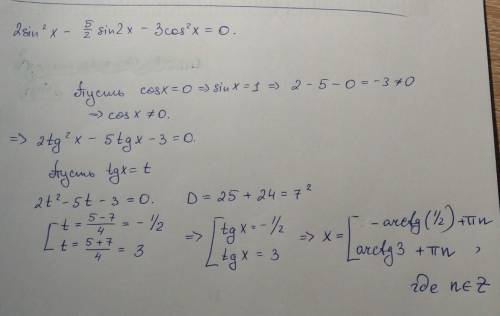 2sin²x − 5/2 sin2x − 3cos²x = 0.
Пусть cosx=0 ⇒ sinx=1 ⇒ 2−5−0=−3≠0
⇒ cosx≠0.
⇒ 2tg²x − 5tgx − 3 = 0.
Пусть tgx = t
2t² − 5t − 3 = 0. D = 25 + 24 = 7²
[ t = (5−7)/4 = −1/2 ⇒ [ tgx = −1/2 ⇒ x = [ −arctg(1/2) + πn
t = (5+7)/4 = 3 tgx = 3 arctg3 + πn ,
где n∈Z